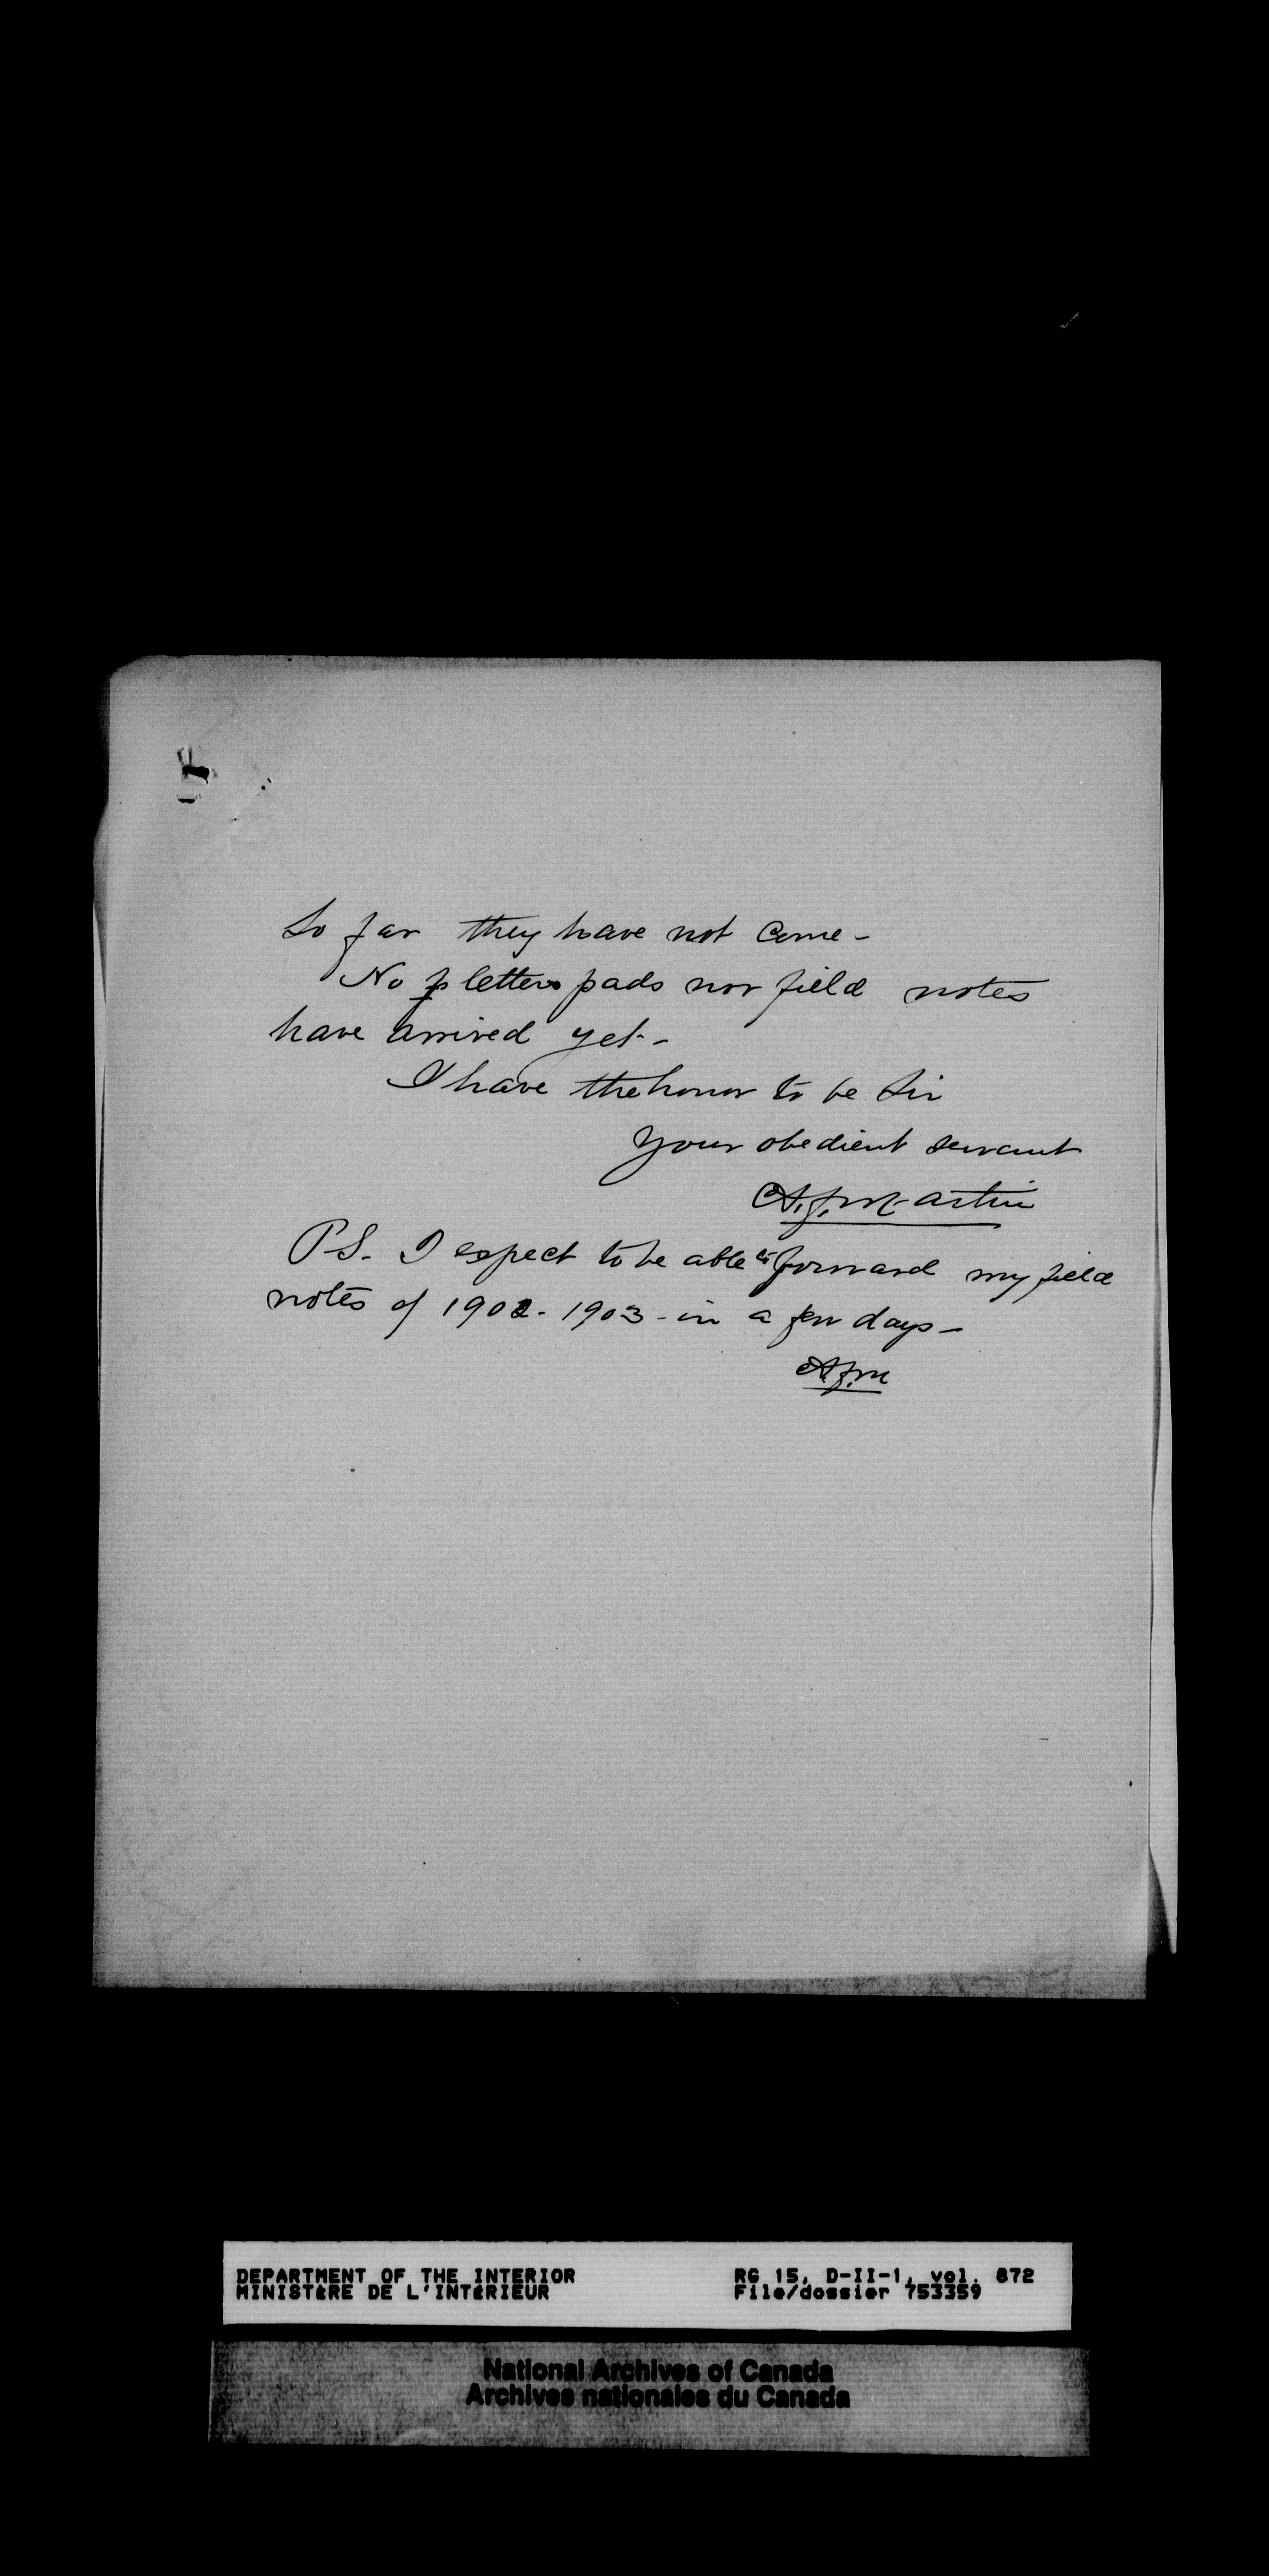 So far they have not come -
No letter pads nor field notes
have arrived yet. -
I have the honor to be Sir
Your obedient servant
A.F. Martin
P.S. I expect to be able to forward my field
notes of 1902 - 1903 - in a few days -
A.F.M
DEPARTMENT OF THE INTERIOR RG 15, D-II-1, vol. 872
MINISTÈRE DE L'INTÉRIEUR File/dossier 753359
National Archives of Canada
Archives nationales du Canada